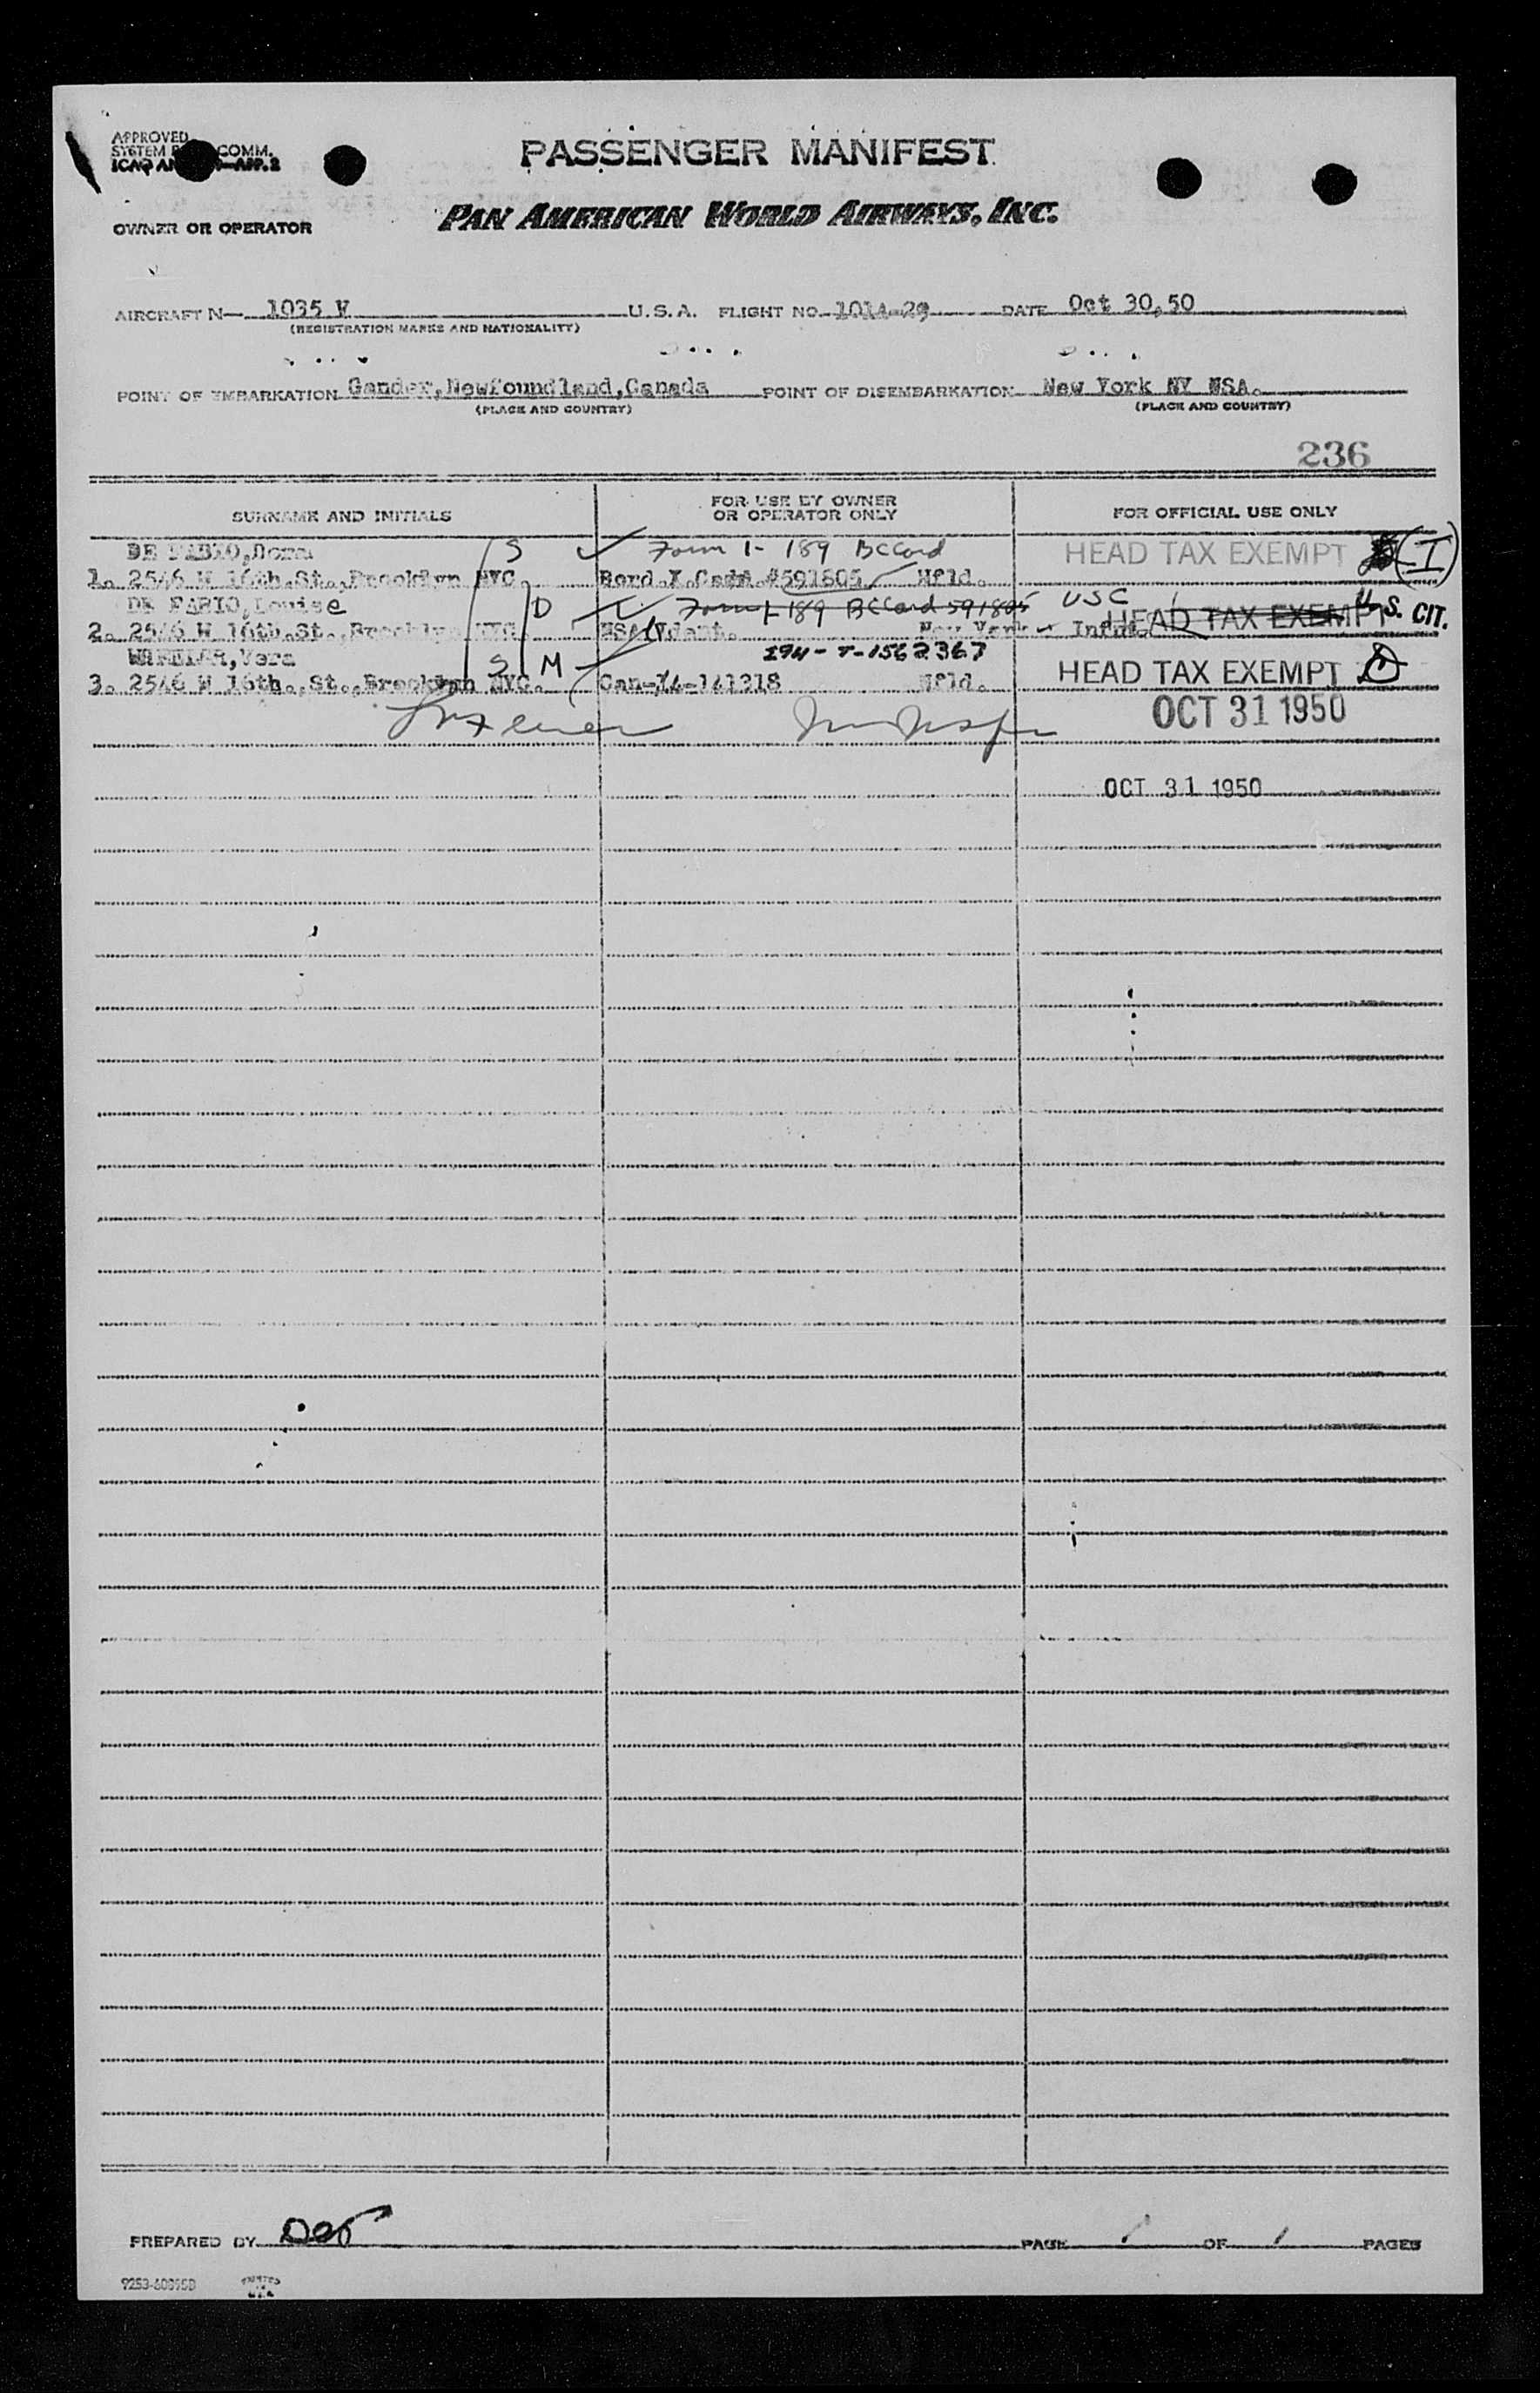 APPROVED
SYSTEM COMM.
ICAO APP. 2
PASSENGER MANIFEST
OWNER OR OPERATOR
PAN AMERICAN WORLD AIRWAYS, INC.
AIRCRAFT N— 1035 V U.S.A. FLIGHT NO. 101A-29 DATE Oct 30,50
(REGISTRATION MARKS AND NATIONALITY)
POINT OF EMBARKATION Gander,Newfoundland,Canada POINT OF DISEMBARKATION New York NY USA.
(PLACE AND COUNTRY) (PLACE AND COUNTRY)
236
SURNAME AND INITIALS FOR USE BY OWNER OR OPERATOR ONLY FOR OFFICIAL USE ONLY
DE FABIO, S Form 1-189 BCCard HEAD TAX EXEMPT (I)
1. 2546 W 16th.St.,Brooklyn NYC. Bord.X. #591805 Nfld.
DE FABIO,Louise D Form 1-189 BCCard 591805 USC U.S. CIT.
2. 2546 W 16th.St.,Brooklyn NYC. USA Ident. New York HEAD TAX EXEMPT
WHELLAR,Vera S M I94-T-1562367
3. 2546 W 16th.,St.,Brooklyn NYC. Can-14-141318 Nfld. HEAD TAX EXEMPT
OCT 31 1950
OCT 31 1950
PREPARED BY PAGE 1 OF 1 PAGES
PRINTED